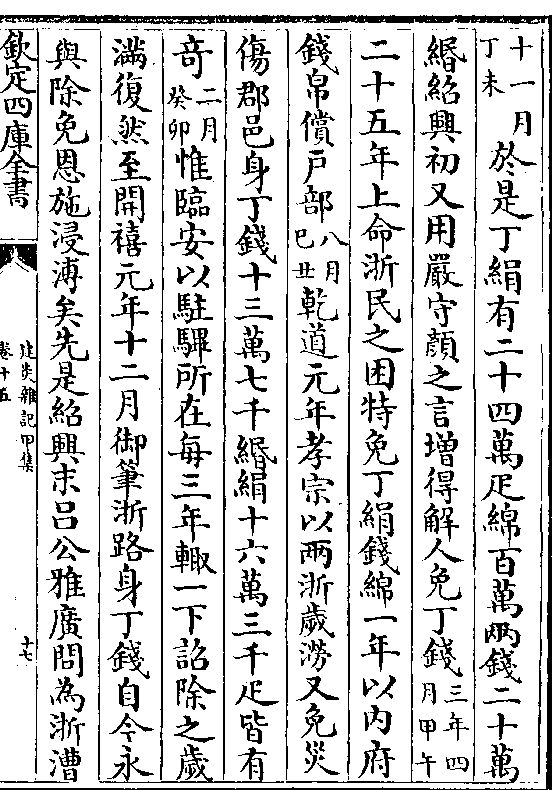 十一月丁未於是丁絹有二十四萬疋綿百萬兩錢二十萬
緡紹興初又用嚴守顏之言增得解人免丁錢三年四月甲午
二十五年上命浙民之困特免丁絹錢綿一年以内府
錢帛償戸部八月己丑乾道元年孝宗以兩浙歲澇又免災
傷郡邑身丁錢十三萬七千緡絹十六萬三千疋皆有
奇二月癸卯惟臨安以駐驆所在每三年輙一下詔除之歲
滿復然至開禧元年十二月御筆浙路身丁錢自今永
與除免恩施浸溥矣先是紹興末吕公雅廣問為浙漕
欽定四庫全書
建炎雜記甲集
卷十五
十七